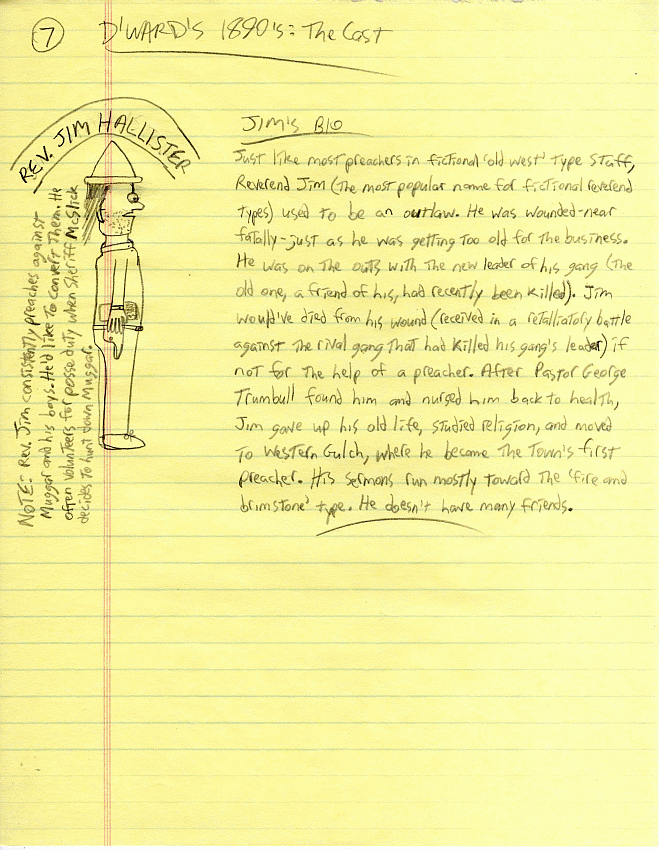 7
D'WARD'S 1890's: The Cast
REV. JIM HALLISTER
JIM'S BIO
Just like most preachers in fictional 'old west' type stuff,
Reverend Jim (the most popular name for fictional reverend
types) used to be an outlaw. He was wounded-near
fatally-just as he was getting too old for the business.
He was on the outs with the new leader of his gang (the
old one, a friend of his, had recently been killed). Jim
would've died from his wound (received in a retalliatory battle
against the rival gang that had killed his gang's leader) if
not for the help of a preacher. After Pastor George
Trumbull found him and nursed him back to health,
Jim gave up his old life, studied religion, and moved
to Western Gulch, where he became the town's first
preacher. His sermons run mostly toward the 'fire and
brimstone' type. He doesn't have many friends.
NOTE: Rev. Jim consistently preaches against
Muggar and his boys. He'd like to convert them. He
often volunteers for posse duty when Sheriff McSlick
decides to hunt down Muggar.